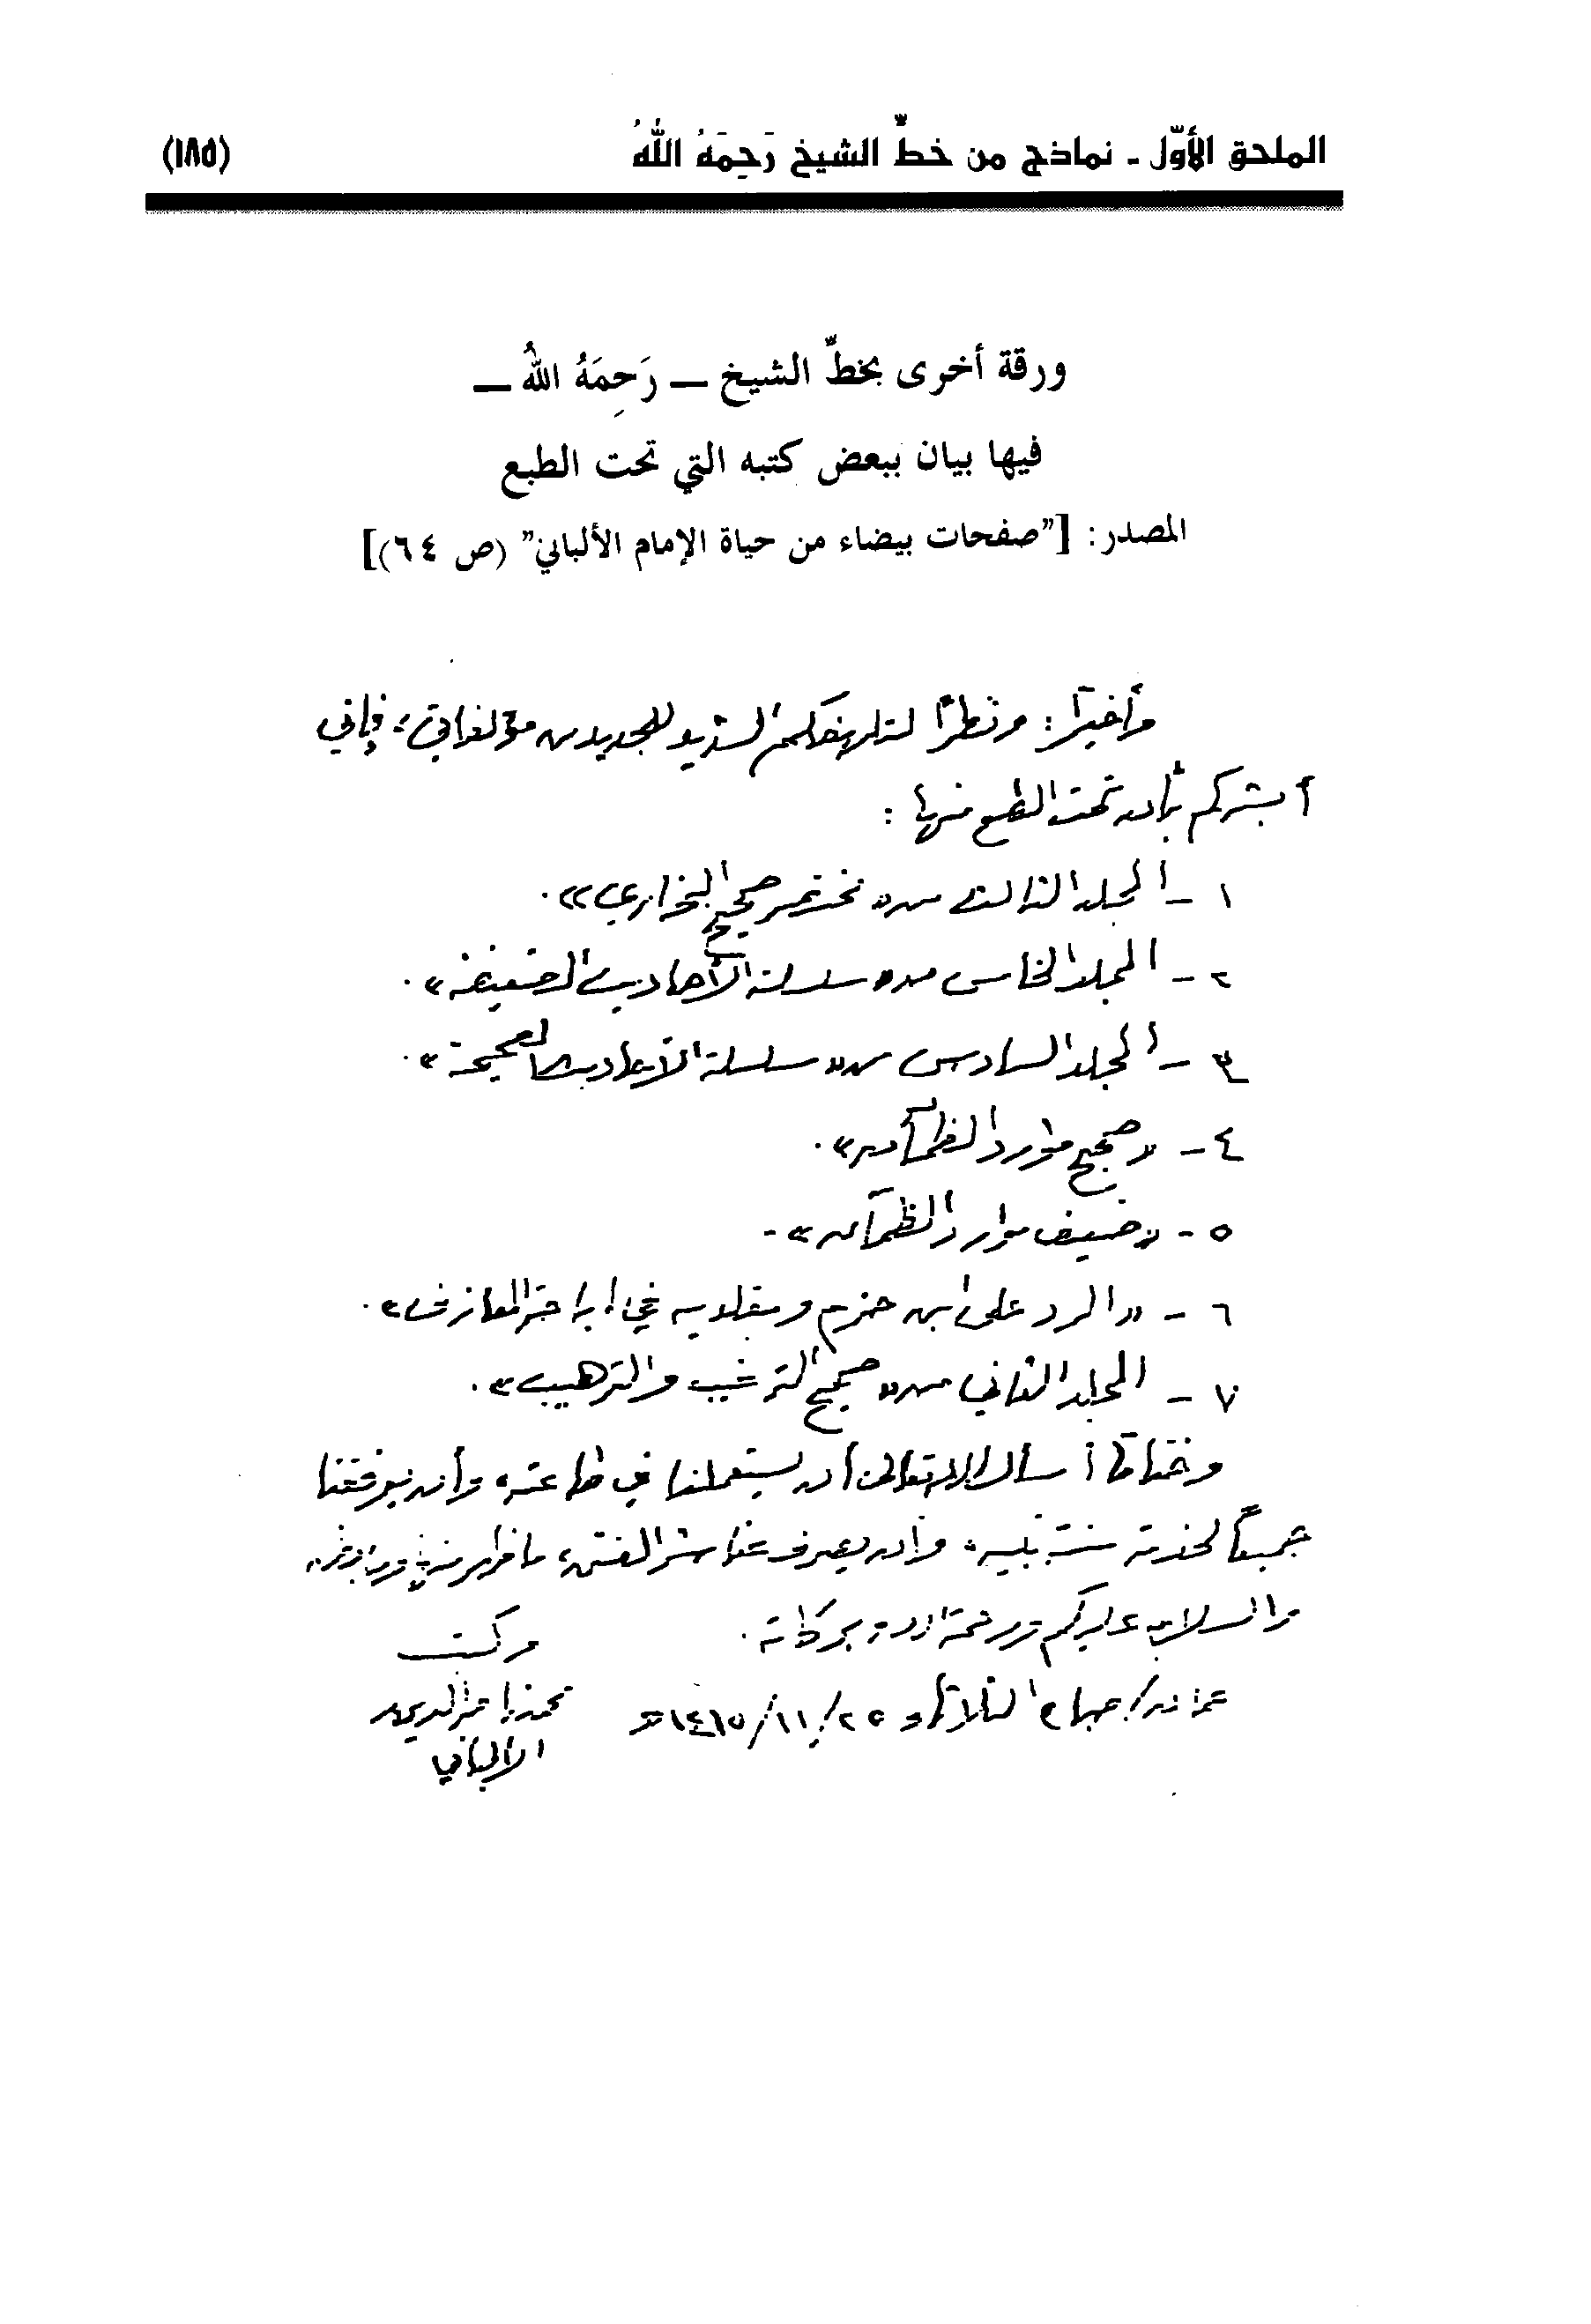 الملحق الأوّل - نماذج من خطِّ الشيخ رَحِمَهُ اللهُ (١٨٥)
ورقة أخرى بخطِّ الشيخ – رَحِمَهُ اللهُ –
فيها بيان ببعض كتبه التي تحت الطبع
المصدر: ["صفحات بيضاء من حياة الإمام الألباني" (ص ٦٤)]
وأخيرًا: ونظرًا لتلهفكم الشديد للجديد من مؤلفاتي، فإني
أبشركم بأن تحت الطبع منها:
١ - المجلد الثالث من «مختصر صحيح البخاري».
٢ - المجلد الخامس من «سلسلة الأحاديث الضعيفة».
٣ - المجلد السادس من «سلسلة الأحاديث الصحيحة».
٤ - «صحيح موارد الظمآن».
٥ - «ضعيف موارد الظمآن».
٦ - «الرد على ابن حزم ومقلديه في إباحة المعازف».
٧ - المجلد الثاني من «صحيح الترغيب والترهيب».
وختامًا أسأل الله تعالى أن يستعملنا في طاعته، وأن يوفقنا
جميعًا لخدمة سنة نبيه، وأن يصرف عنا شر الفتن، ما ظهر منها وما بطن،
والسلام عليكم ورحمة الله وبركاته.
وكتب
عمان / صباح الثلاثاء ٢٥/١١/١٤١٥هـ
محمد ناصر الدين
الألباني